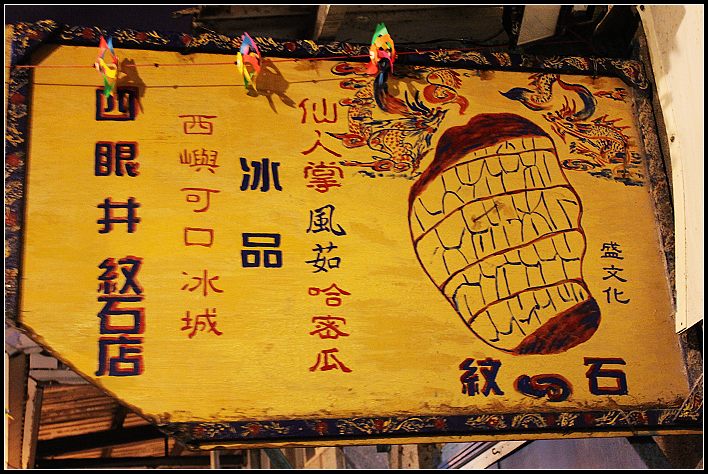 四眼井紋石店
西嶼可口冰城
冰品
仙人掌風茹哈密瓜
盛文化
紋石